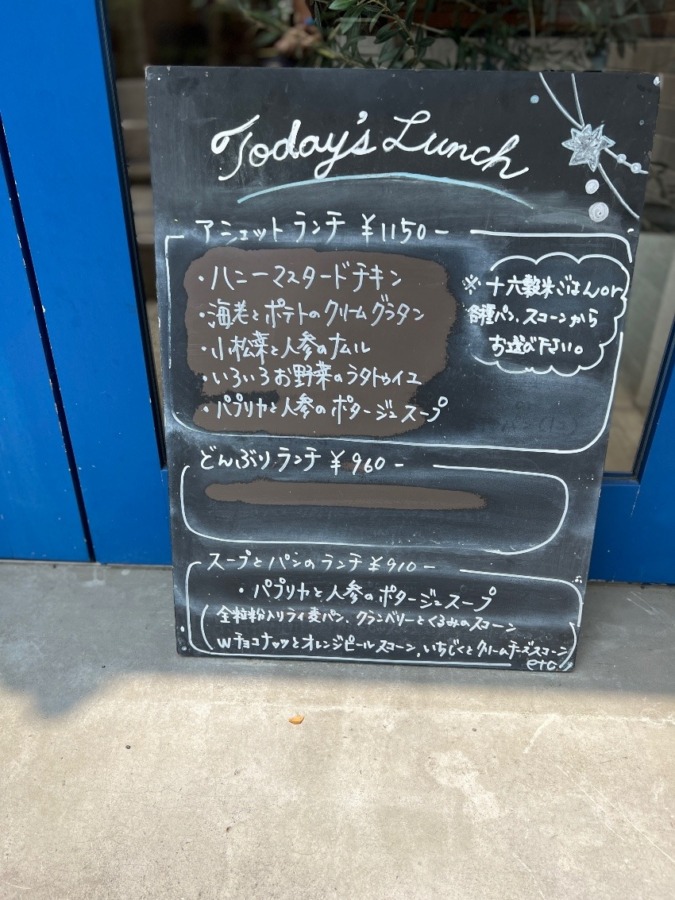 Today's Lunch
アシェット ランチ ¥1150-
・ハニーマスタードチキン
・海老とポテトのクリームグラタン
・小松菜と人参のナムル
・いろいろお野菜のラタトゥイユ
・パプリカと人参のポタージュスープ
※十六穀米ごはんor
各種パン、スコーンから
お選び下さい。
どんぶりランチ ¥960-
スープとパンのランチ ¥910-
・パプリカと人参のポタージュスープ
全粒粉入りライ麦パン、クランベリーとくるみのスコーン
Wチョコナッツとオレンジピールスコーン、いちじくとクリームチーズスコーン
etc